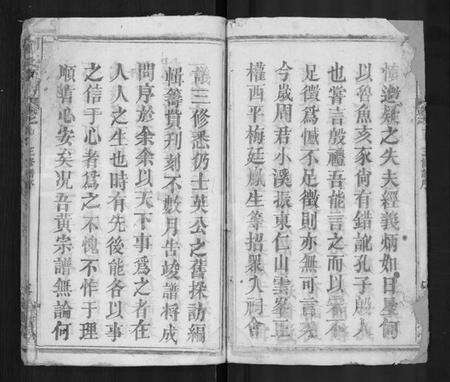 疑之失夫經義炳如日星何
以魯魚亥豕尚有錯訛孔子殷人
也嘗言殷禮吾能言之而以宋不
足徵為憾不足徵則亦無可言矣
今歲周君小溪振東仁山雲峯正
權西平梅廷鳳生等招眾入祠會
議三修悉仍士英公之舊採訪編
輯籌貲刊刻不數月告竣譜將成
問序於余余以天下事為之者在
人人之生也時有先後能各以事
之信于心者為之不愧不怍于理
順諸心安矣况吾黃崇譜無論何